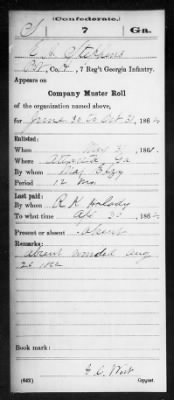 (Confederate.)
S 7 Ga.
E. A. Stephens
Co. 7 Reg't Georgia Infantry.
Appears on
Company Muster Roll
of the organization named above,
for June 30 to Oct 31, 186 2
Enlisted:
When May 31, 186
Where Atlanta, Ga
By whom Maj
Period 12 mo
Last paid:
By whom R. K.
To what time Apr 30 186 2
Present or absent Absent
Remarks:
absent wounded Aug
28 1862
Book mark:
(642) Copyist.